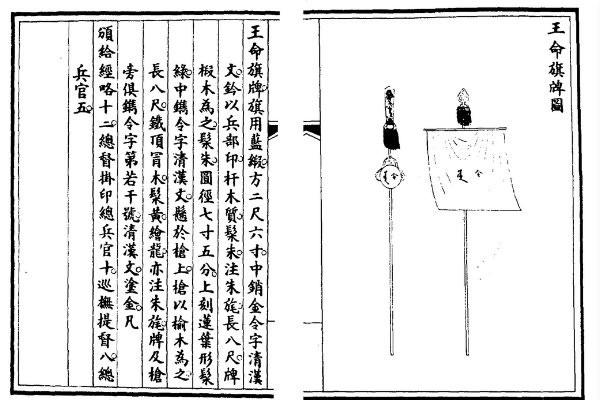 王命旗牌圖
令
令
王命旗牌旗用藍緞方二尺六寸中銷金令字清漢
文鈐以兵部印杆木質髹朱注朱旄長八尺牌
椴木為之髹朱圓徑七寸五分上刻蓮葉形髹
綠中鐫令字清漢文懸於槍上槍以榆木為之
長八尺鐵頂冒木髹黃繪龍亦注朱旄牌及槍
旁俱鐫令字第若干號清漢文塗金凡
頒給經略十二總督掛印總兵官十巡撫提督八總
兵官五